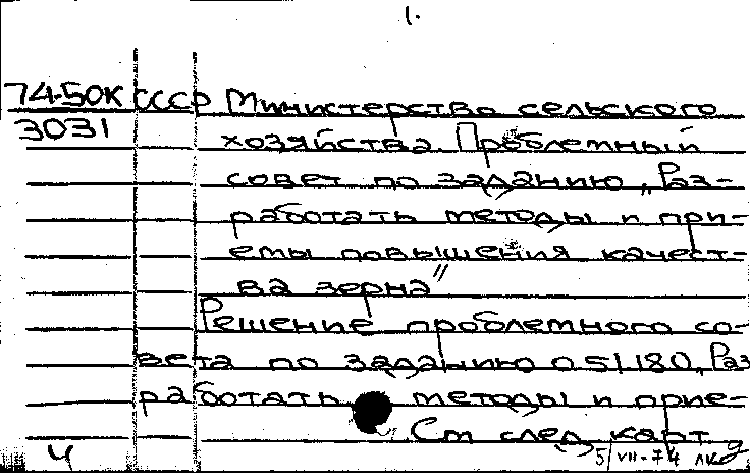 1.
74-50К СССР Министерство сельского
3031 хозяйства. Проблемный
совет по заданию „Раз-
работать методы и при-
емы повышения качест-
ва зерна"
Решение проблемного со-
вета по заданию 051.180 „Раз
работать методы и прие-
См след карт
4 5/VII-74